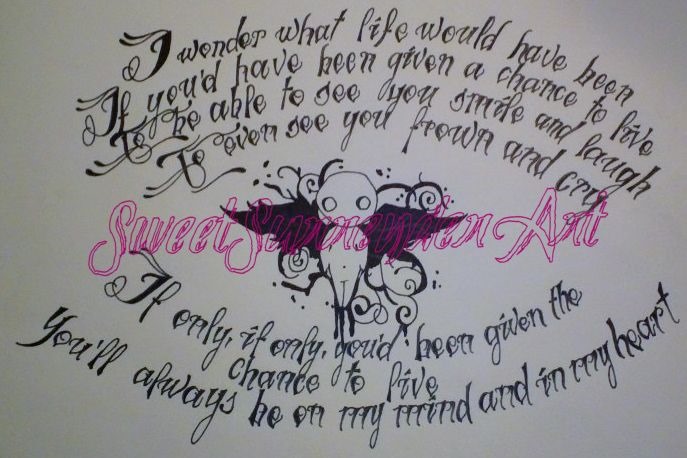 I wonder what life would have been
If you'd have been given a chance to live
To be able to see you smile and laugh
To even see you frown and cry
If only, if only, you'd been given the
chance to live
You'll always be on my mind and in my heart